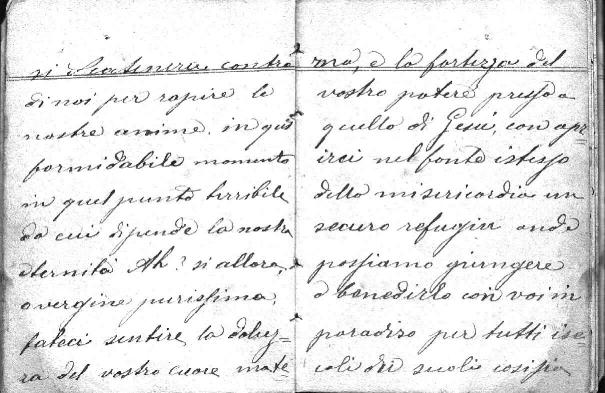 si scatenera contro
di noi per rapire le
nostre anime, in quel
formidabile momento
in quel punto terribile
da cui dipende la nostra
eternità Ah? si allora,
o vergine purissima,
fateci sentire la dolcez-
za del vostro cuore mate-
rno, e la fortezza del
vostro potere presso a
quello di Gesù, con apr-
irci nel fonte istesso
della misericordia un
securo refugio onde
possiamo giungere
a benedirlo con voi in
paradiso per tutti i se-
coli dei secoli cosisia